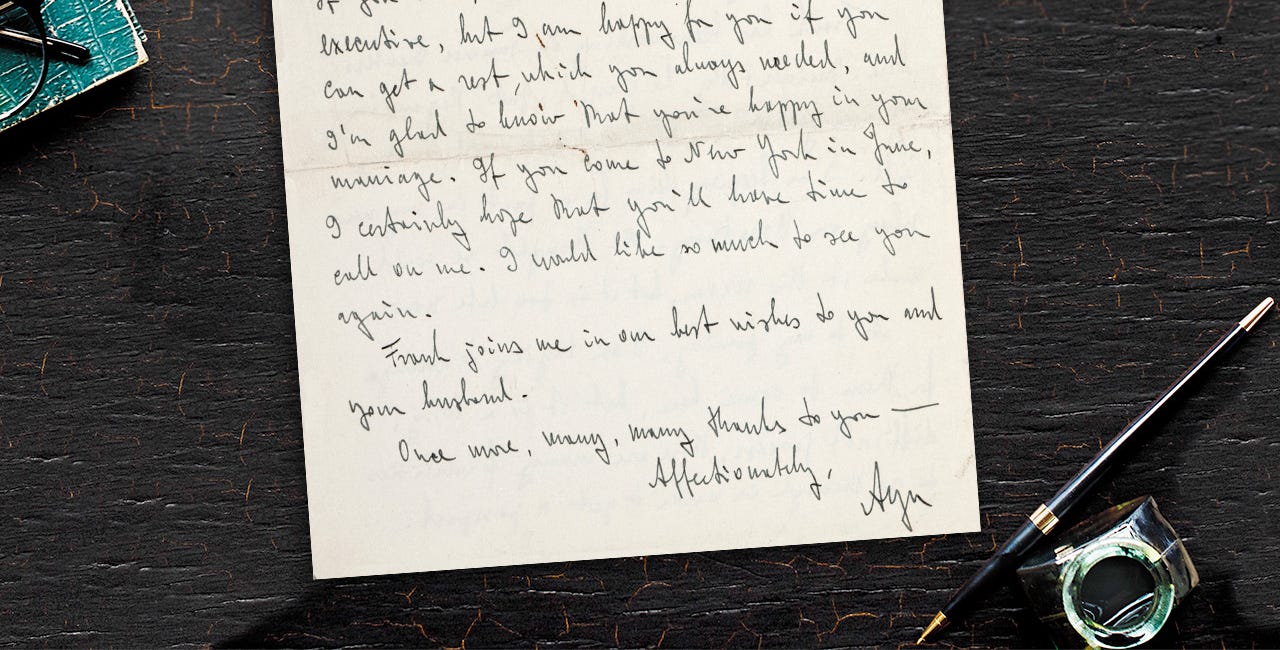 of you
executive, but I am happy for you if you
can get a rest, which you always needed, and
I'm glad to know that you're happy in your
marriage. If you come to New York in June,
I certainly hope that you'll have time to
call on me. I would like so much to see you
again.
Frank joins me in our best wishes to you and
your husband.
Once more, many, many thanks to you —
Affectionately,
Ayn